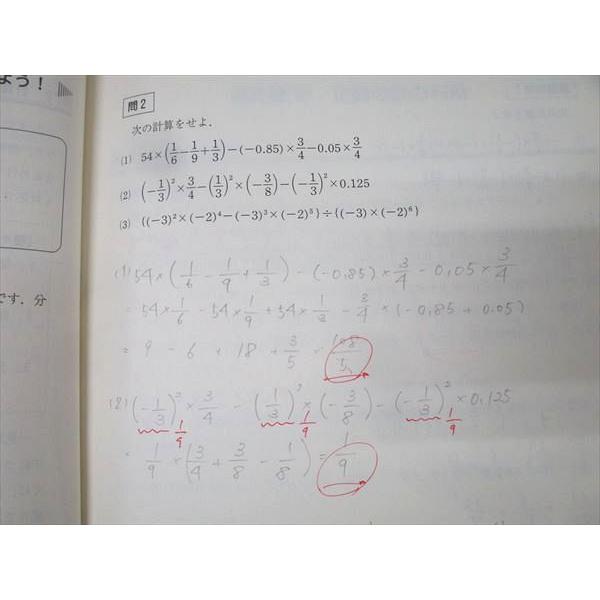 よう！
問2
次の計算をせよ．
(1) 54×(1/6−1/9+1/3)−(−0.85)×3/4−0.05×3/4
(2) (−1/3)²×3/4−(1/3)²×(−3/8)−(−1/3)²×0.125
(3) {(−3)²×(−2)⁴−(−3)³×(−2)⁵}÷{(−3)×(−2)⁶}
です．分
(1) 54×(1/6 − 1/9 + 1/3) − (−0.85)×3/4 − 0.05×3/4
= 54×1/6 − 54×1/9 + 54×1/3 − 3/4×(−0.85+0.05)
= 9 − 6 + 18 + 3/5 = 108/5
(2) (−1/3)²×3/4 − (1/3)²×(−3/8) − (−1/3)²×0.125
1/9 1/9 1/9
= 1/9×(3/4 + 3/8 − 1/8) = 1/9